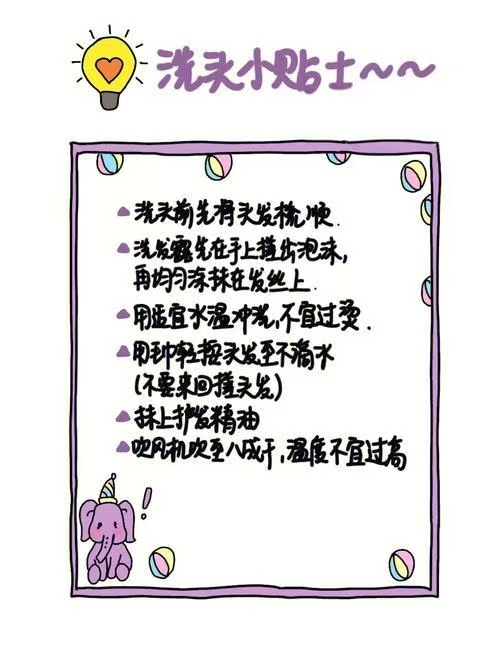 洗头小贴士~~
洗头前先将头发梳顺.
洗发露先在手上搓出泡沫,
再均匀涂抹在发丝上.
用适宜水温冲洗,不宜过烫.
用毛巾轻按头发至不滴水
(不要来回搓头发)
抹上护发精油
吹风机吹至八成干,温度不宜过高
!